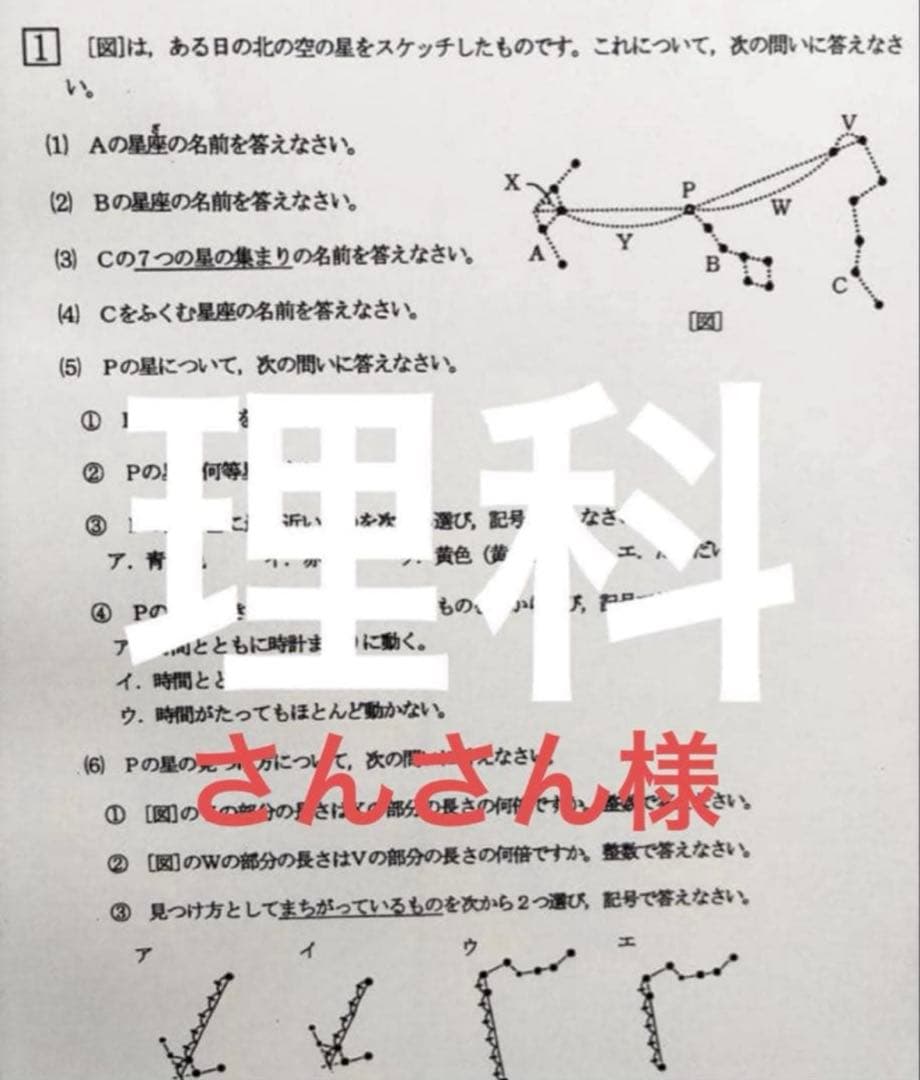 1 [図]は，ある日の北の空の星をスケッチしたものです。これについて，次の問いに答えなさ
い。
(1) Aの星座の名前を答えなさい。
ざ
(2) Bの星座の名前を答えなさい。
(3) Cの7つの星の集まりの名前を答えなさい。
(4) Cをふくむ星座の名前を答えなさい。
(5) Pの星について，次の問いに答えなさい。
X
A
Y
P
B
W
V
C
[図]
①
を
② Pの 何等星
③ 選び，記号 なさ
ア．青 イ． ウ．黄色（黄 エ．
④ Pの もの び，記号
ア． 間とともに時計ま に動く。
イ．時間とと
ウ．時間がたってもほとんど動かない。
理科
さんさん様
(6) Pの星の見つけ方について，次の問いに答えなさい。
① [図]の の部分の長さは の部分の長さの何倍ですか。整数で答えなさい。
② [図]のWの部分の長さはVの部分の長さの何倍ですか。整数で答えなさい。
③ 見つけ方としてまちがっているものを次から2つ選び，記号で答えなさい。
ア イ ウ エ